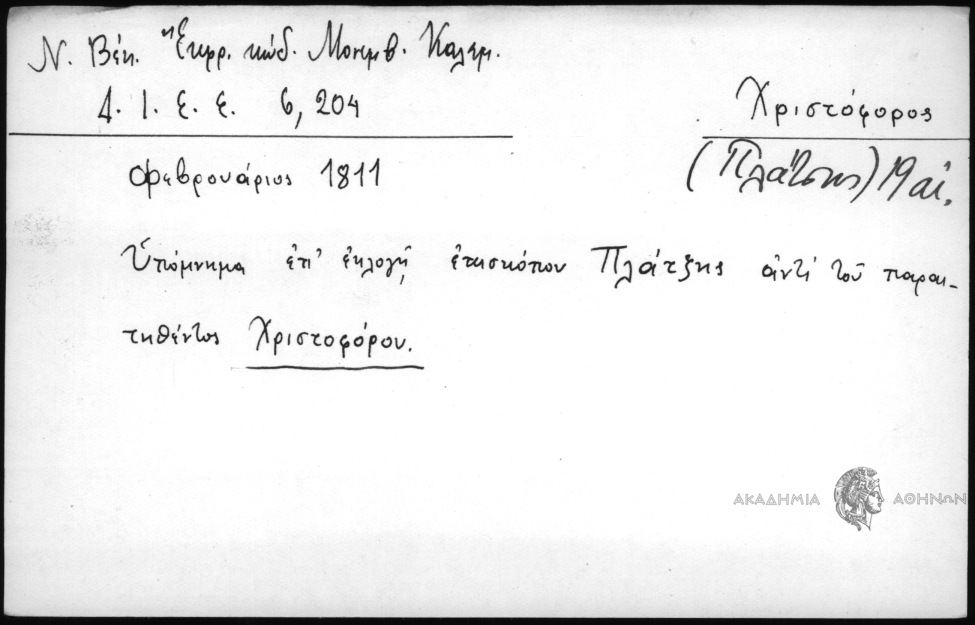 Ν. Βέη. "Ἔκφρ. κώδ. Μονεμβ. Καλαμ.
Δ. Ι. Ε. Ε. 6, 204
Χριστόφορος
(Πλάτσης) 19 αἰ.
Φεβρουάριος 1811
Ὑπόμνημα ἐπὶ ἐκλογῇ ἐπισκόπου Πλάτζης ἀντὶ τοῦ παραι-
τηθέντος Χριστοφόρου.
ΑΚΑΔΗΜΙΑ ΑΘΗΝΩΝ